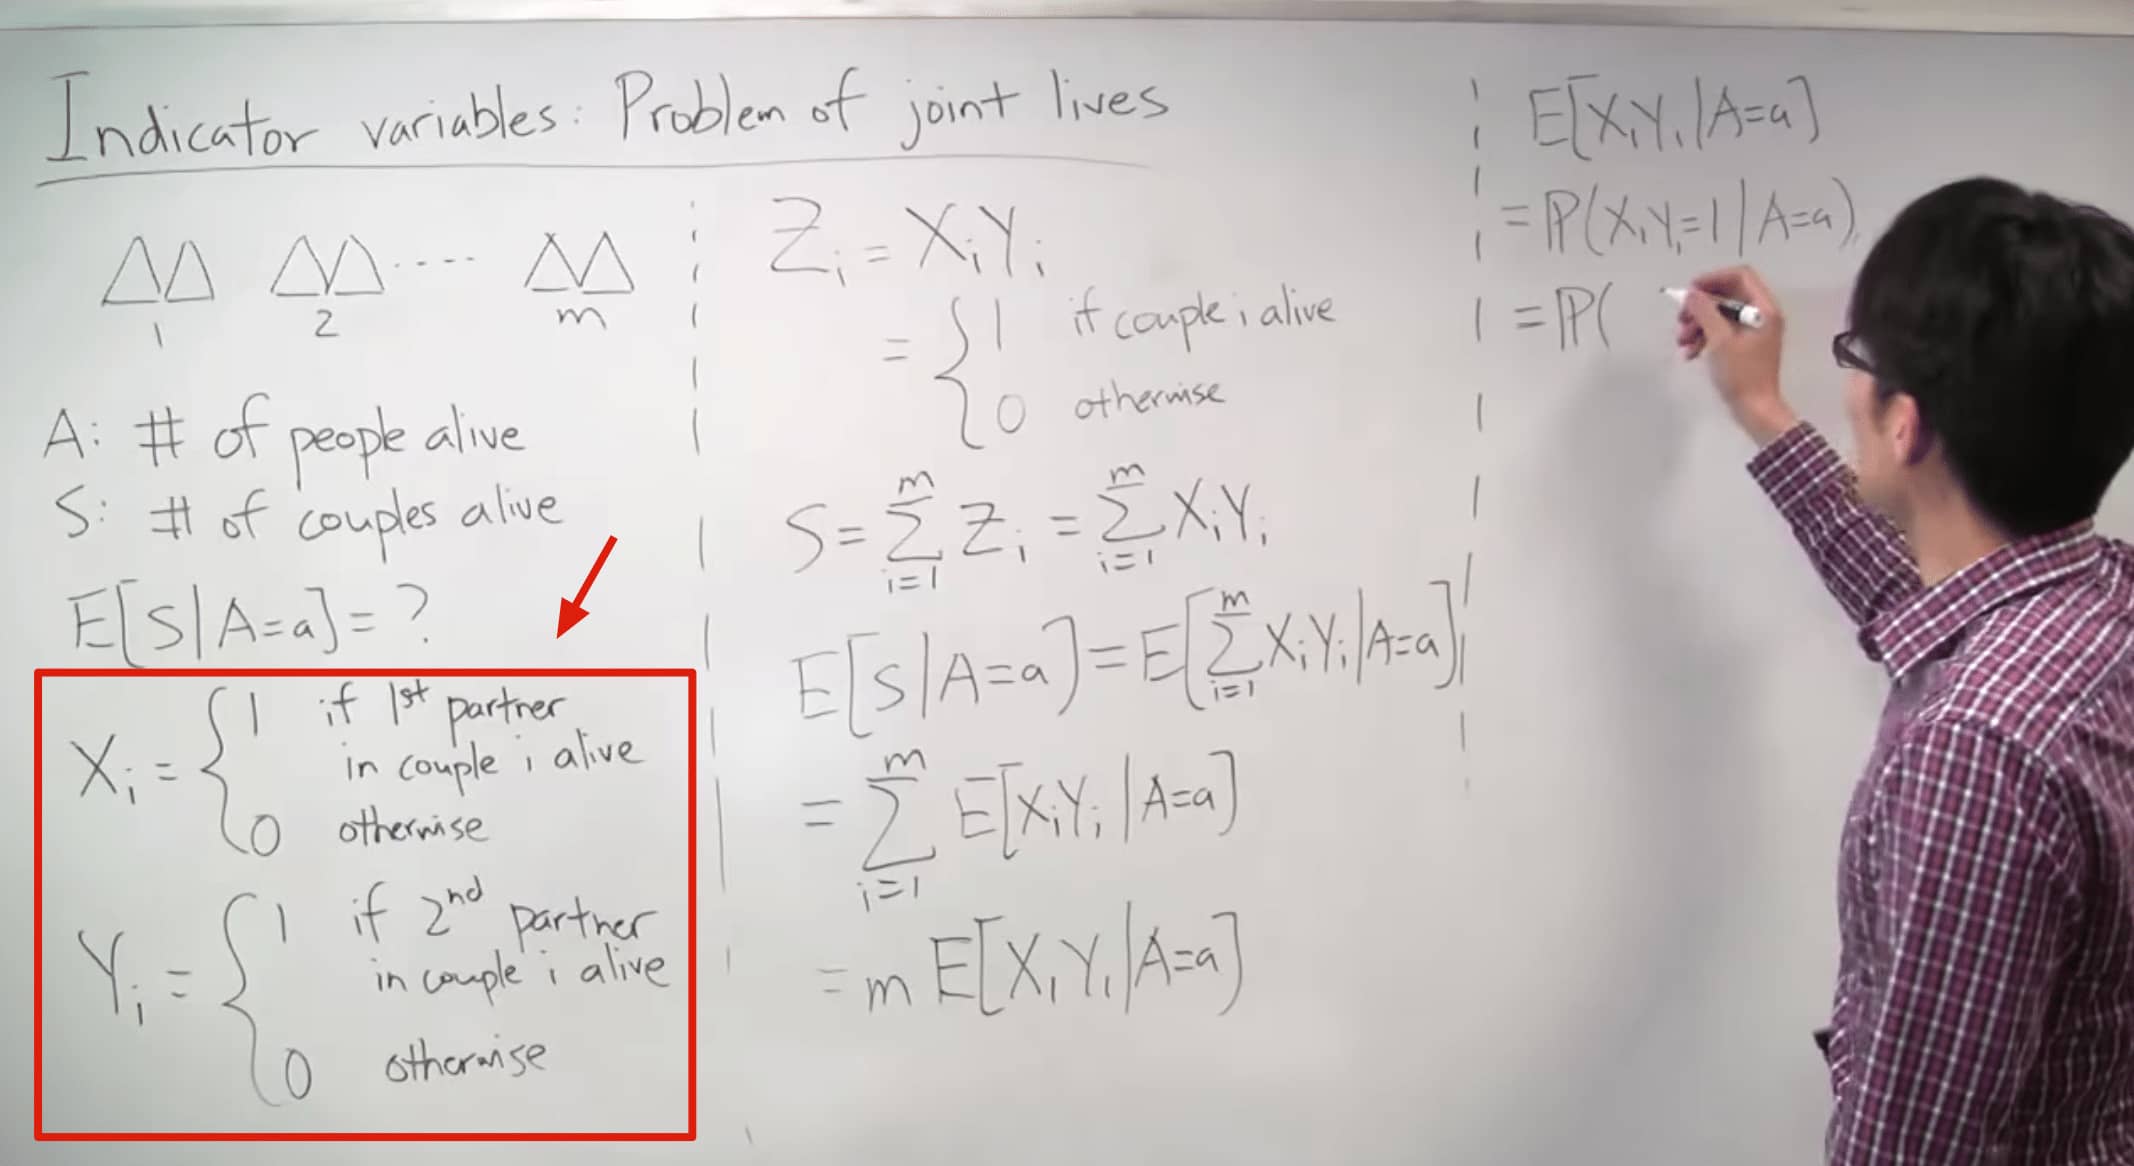 Indicator variables: Problem of joint lives
1 2 m
A: # of people alive
S: # of couples alive
E[S|A=a]=?
X_i = { 1 if 1st partner
in couple i alive
0 otherwise
Y_i = { 1 if 2nd partner
in couple i alive
0 otherwise
Z_i = X_iY_i
= { 1 if couple i alive
0 otherwise
S = ∑_{i=1}^{m} Z_i = ∑_{i=1}^{m} X_iY_i
E[S|A=a] = E[∑_{i=1}^{m} X_iY_i|A=a]
= ∑_{i=1}^{m} E[X_iY_i|A=a]
= m E[X_1Y_1|A=a]
E[X_1Y_1|A=a]
= ℙ(X_1Y_1=1|A=a)
= ℙ(